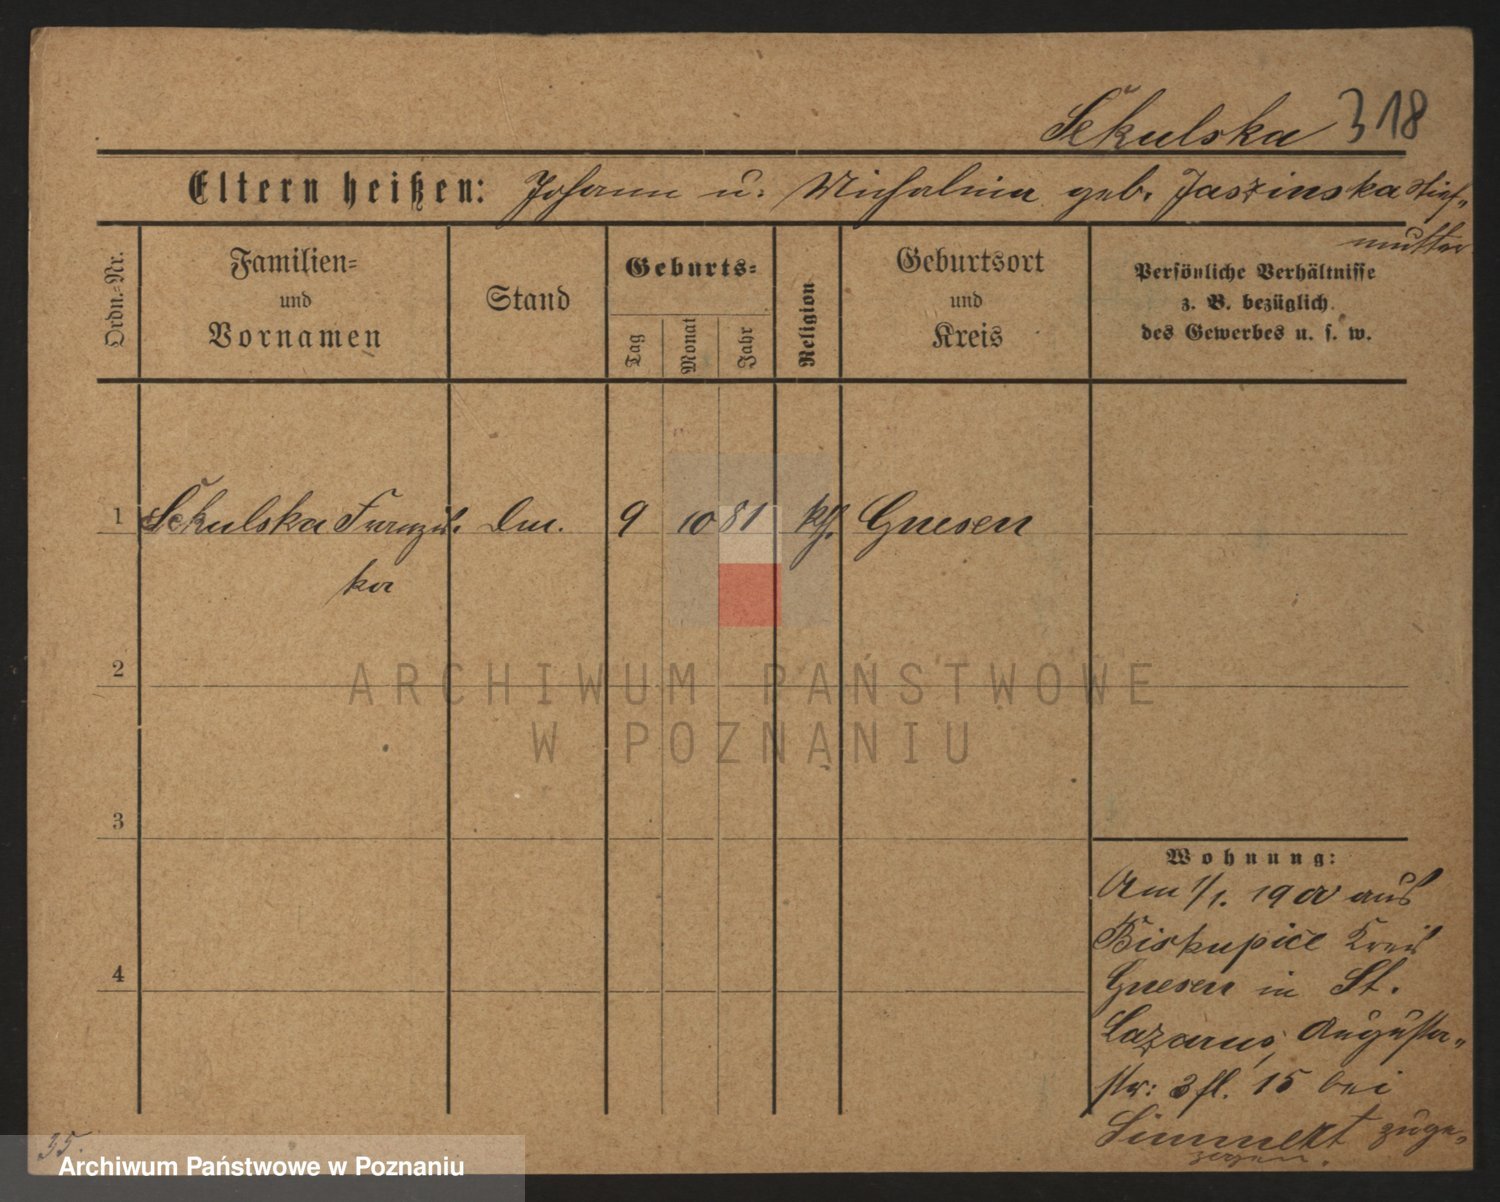 Sekulska 318
Eltern heißen: Johann u. Michalina geb. Jaszinska Stief-
mutter
Ordn.-Nr.
Familien-
und
Vornamen
Stand
Geburts-
Tag
Monat
Jahr
Religion
Geburtsort
und
Kreis
Persönliche Verhältnisse
z. B. bezüglich
des Gewerbes u. s. w.
1 Sekulska Franzis- 9 10 81 kth. Gnesen
ka
2
ARCHIWUM PAŃSTWOWE
W POZNANIU
3
Wohnung:
Am 1/1. 1900 aus
Biskupice Kreis
4
Gnesen in St.
Lazarus, Augusta-
str: 3 15 bei
zuge-
zogen.
35.
Archiwum Państwowe w Poznaniu